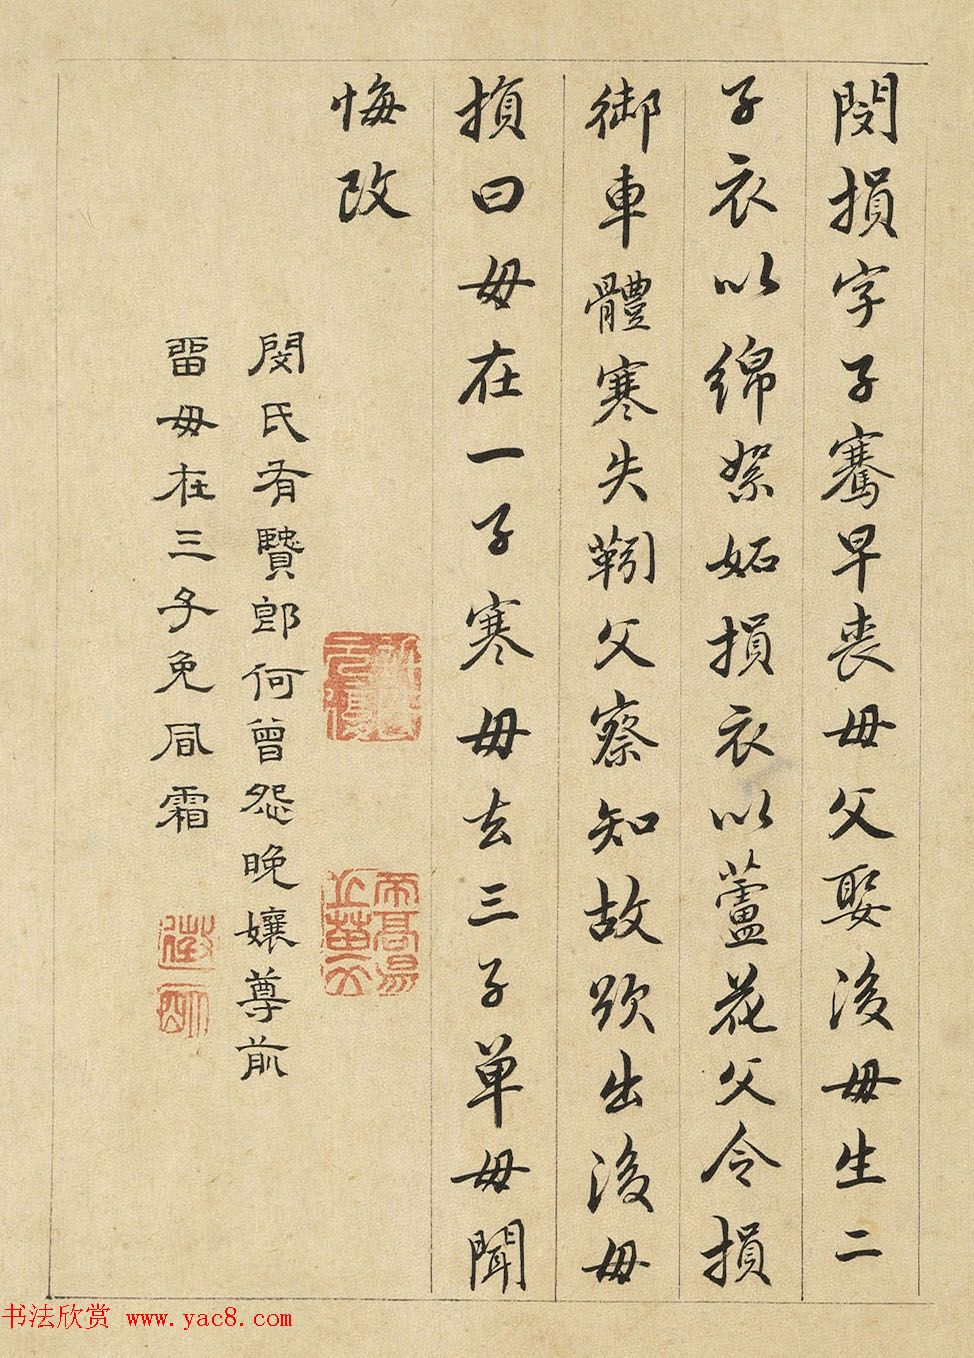 閔損字子騫早喪母父娶後母生二
子衣以綿絮妬損衣以蘆花父令損
御車體寒失靷父察知故欲出後母
損曰母在一子寒母去三子單母聞
悔改
閔氏有賢郎何曾怨晚孃尊前
留母在三子免風霜
书法欣赏 www.yac8.com